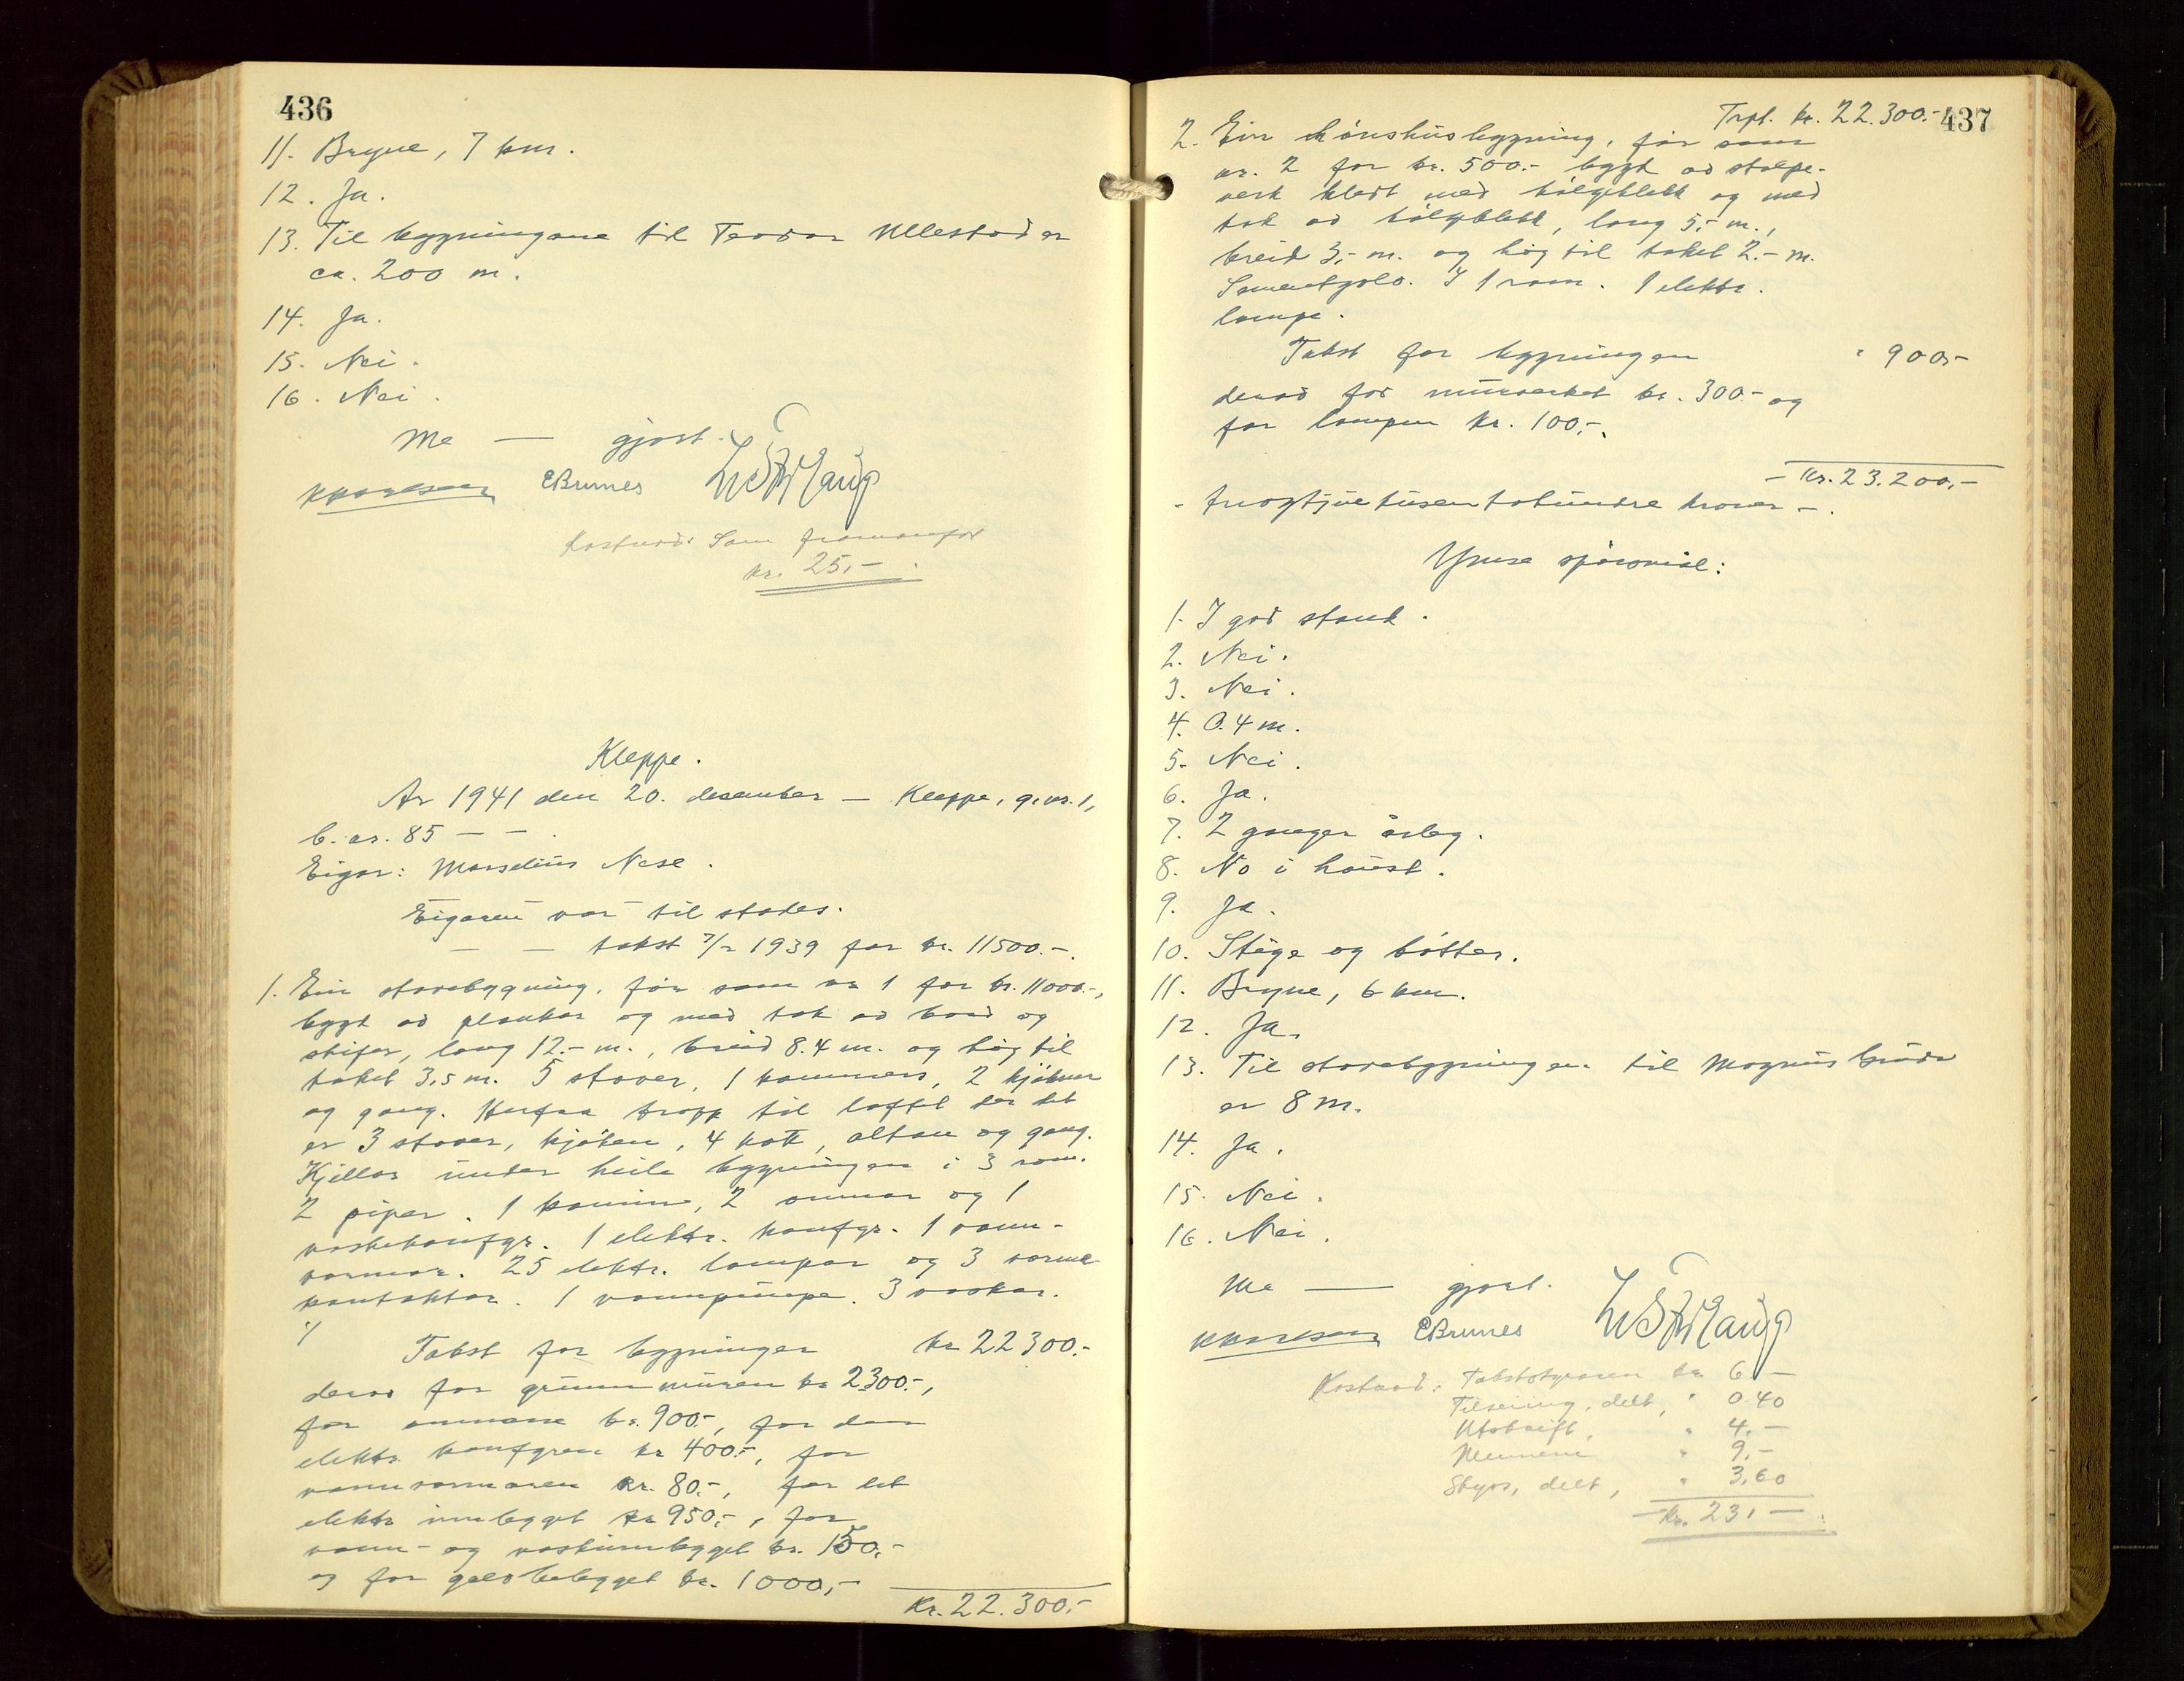 436
11. Bryne, 7 km.
12. Ja.
13. Til bygningane til Teodor Ullestad er
ca. 200 m.
14. Ja.
15. Nei.
16. Nei.
Me — gjort.
CBrunes
Kostnad: Som framanfor
kr. 25,-.
Kleppe.
År 1941 den 20. desember — Kleppe, g.nr. 1,
b.nr. 85 — —.
Eigar: Marselius Nese.
Eigaren var til stades.
— — takst 7/2 1939 for kr. 11500.-.
1. Ein stovebygning, før som nr 1 for kr. 11000.-,
bygt av plankar og med tak av bord og
skifer, lang 12.- m., breid 8.4 m. og høg til
taket 3,5 m. 5 stover, 1 kammers, 2 kjøkner
og gang. Herfra tropp til loftet der det
er 3 stover, kjøken, 4 kott, altan og gang.
Kjellar under heile bygningen i 3 rom.
2 piper. 1 kamin, 2 omnar og 1
vaskekomfyr. 1 elektr. komfyr. 1 vann-
varmar. 25 elektr. lampar og 3 varme
kontaktar. 1 vannpumpe. 3 vaskar.
·/
Takst for bygningen kr 22300.-
derav for grunnmuren kr 2300.-,
for omnane kr. 900.-, for den
elektr. komfyren kr 400.-, for
vannvarmaren kr. 80.-, for det
elektr innlegget kr 950,-, for
vann- og vaskinnlegget kr. 150.-
og for golvbelegget kr. 1000,-
Kr. 22.300.-
437
Trpt. kr. 22.300.-
2. Ein hønshusbygning, før som
nr. 2 for kr. 500.- bygt av stolpe-
verk kledt med bølgeblekk og med
tak av bølgeblekk, lang 5,- m.,
breid 3,- m. og høg til taket 2.- m.
Sementgolv. I 1 rom. 1 elektr.
lampe.
Takst for bygningen " 900,-
derav for murverket kr. 300.- og
for lampen kr. 100,-.
- Kr. 23.200,-
- truogtjuetusentohundre kroner -.
Ymse spørsmål:
1. I god stand.
2. Nei.
3. Nei.
4. 0.4 m.
5. Nei.
6. Ja.
7. 2 ganger årleg.
8. No i haust.
9. Ja.
10. Stige og bøtter.
11. Bryne, 6 km.
12. Ja.
13. Til stovebygningen til Magnus Grude
er 8 m.
14. Ja.
15. Nei.
16. Nei.
Me — gjort.
CBrunes
Kostnad: Takststyraren kr. 6,-
Tilseiing, delt, " 0.40
Utskrift, " 4,-
Mennene " 9,-
Skyss, delt, " 3,60
Kr. 23,-